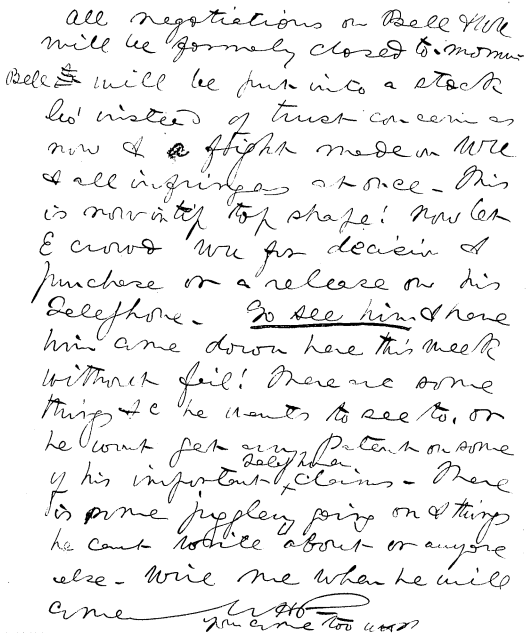 All negotiations on Bell & WU
will be formely closed to-morrow
Bell Co will be put into a stock
Co instead of trust concern as
now & a flight made on WU
& all infringers at once – This
is now in tip top shape! Now let
E crowd WU for decision &
purchase or a release on his
Telephone – Go see him & have
him come down here this week
without fail! There are some
things &c he wants to see to, or
he wont get any Patent on some
of his important Telephone claims – There
is some jugglery going on & things
he cant write about or anyone
else – Write me when he will
come
you come too